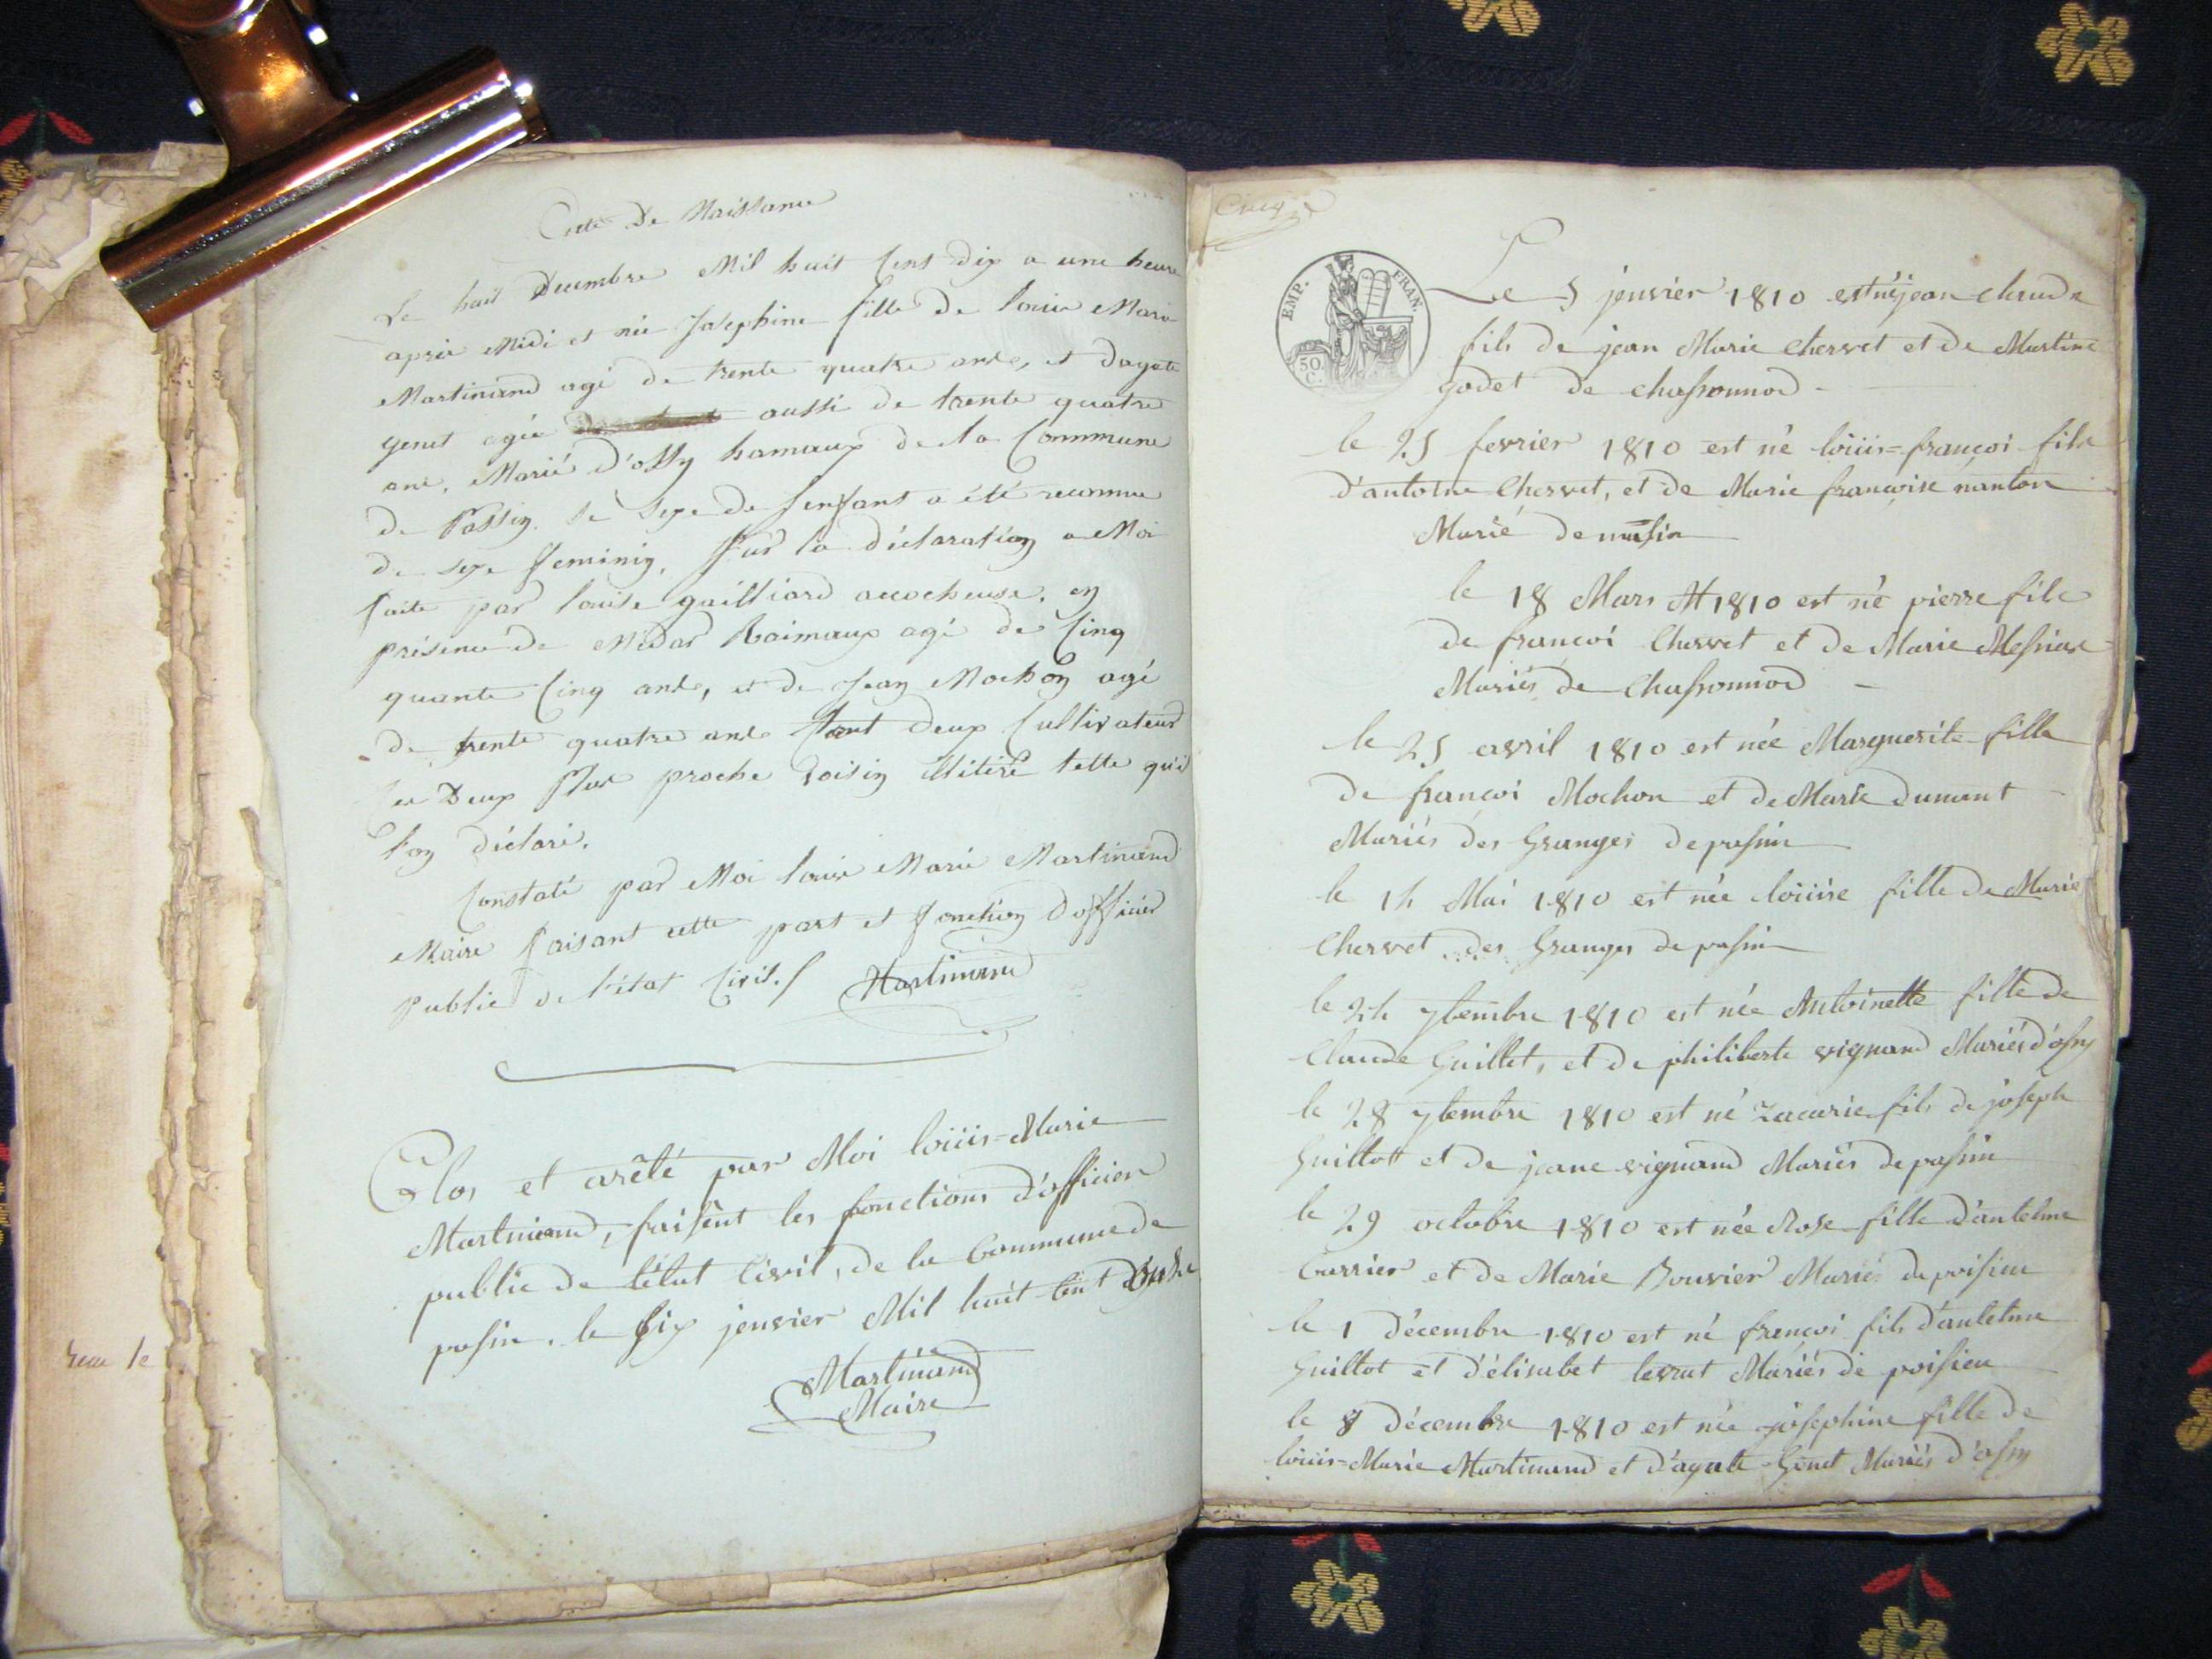 Acte De Naissance
Le huit Decembre Mil huit Cent dix a une heure
aprés Midi et née Josephine fille de louis Marie
Martinand agé de trente quatre ands, et dagate
genet agée aussi de trente quatre
ans, Marié d'ossy hamaux de la Commune
de Passin. le sexe de lenfant a été reconnu
de sexe feminin, sur la déclaration a Moi
faite par louise gailliard accocheuse. en
présence de Médar Raimaux agé de Cinq
quante Cinq ands, et de Jean Mochon agé
de trente quatre ands tout deux Cultivateur
les Deux plus proche voisin illitéré telle qu'il
l'on déclaré.
Constaté par Moi louis Marie Martinand
Maire faisant cette part et fonction d'officier
public de l'état Civil./ Martinand
Clos et arêté par Moi loüis=Marie
Martinand, faisent les fonctions d'officier
public de l'état Civil, de la Commune de
passin. le six jenvier Mil huit Cent Onze
Martinand
Maire
Cinq
EMP. FRAN.
50. C.
Le 5 jenvier 1810 est né jean claude
fils de jean Marie Chervet et de Martine
godet de chassonnod -
le 25 fevrier 1810 est né loüis=françoi fils
d'antoine Chervet, et de Marie françoise nanton
Marié de mussin
le 18 Mars 1810 est né pierre fils
de françoi Chervet et de Marie Messiaz
Mariés de Chassonnod -
le 25 avril 1810 est née Marguerite fille
de françoi Mochon et de Marie Dumant
Mariés des Granges de passin
le 14 Mai 1810 est née loüise fille de Marie
Chervet des Granges de passin
le 24 7tembre 1810 est née Antoinette fille de
Claude Guillet, et de philiberte vignand Mariés d'ossy
le 28 7tembre 1810 est né Zacarie fils de joseph
Guillot et de jeane vignand Mariés de passin
le 29 octobre 1810 est née Rose fille d'antelme
Carrier et de Marie Bouvier Mariés de poisieu
le 1 décembre 1810 est né françoi fils d'antelme
Guillot et d'élisabet levrat Mariés de poisieu
le 8 décembre 1810 est née josephine fille de
loüis=Marie Martinand et d'agate Genet Mariés d'ossy